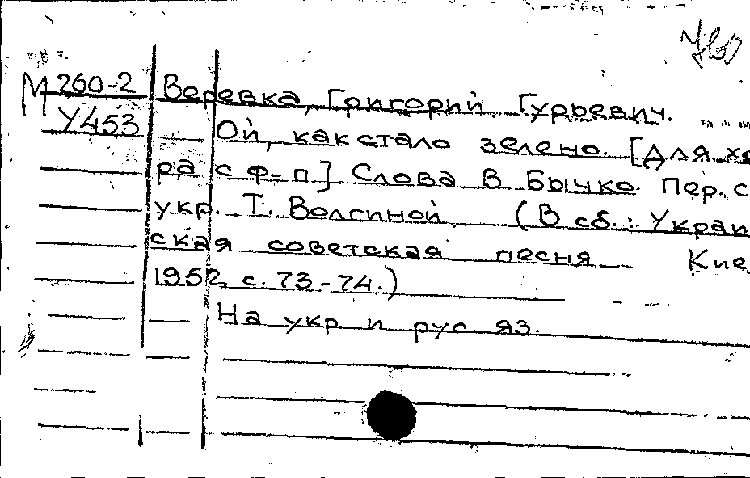 М 260-2 Веревка, Григорий Гурьевич.
У453 Ой, как стало зелено. [Для хо
ра с ф-п] Слова В Бычко. Пер. с
укр. Т. Волгиной. (В сб.: Украин
ская советская песня Кие
1952, с. 73-74.)
На укр и рус яз.